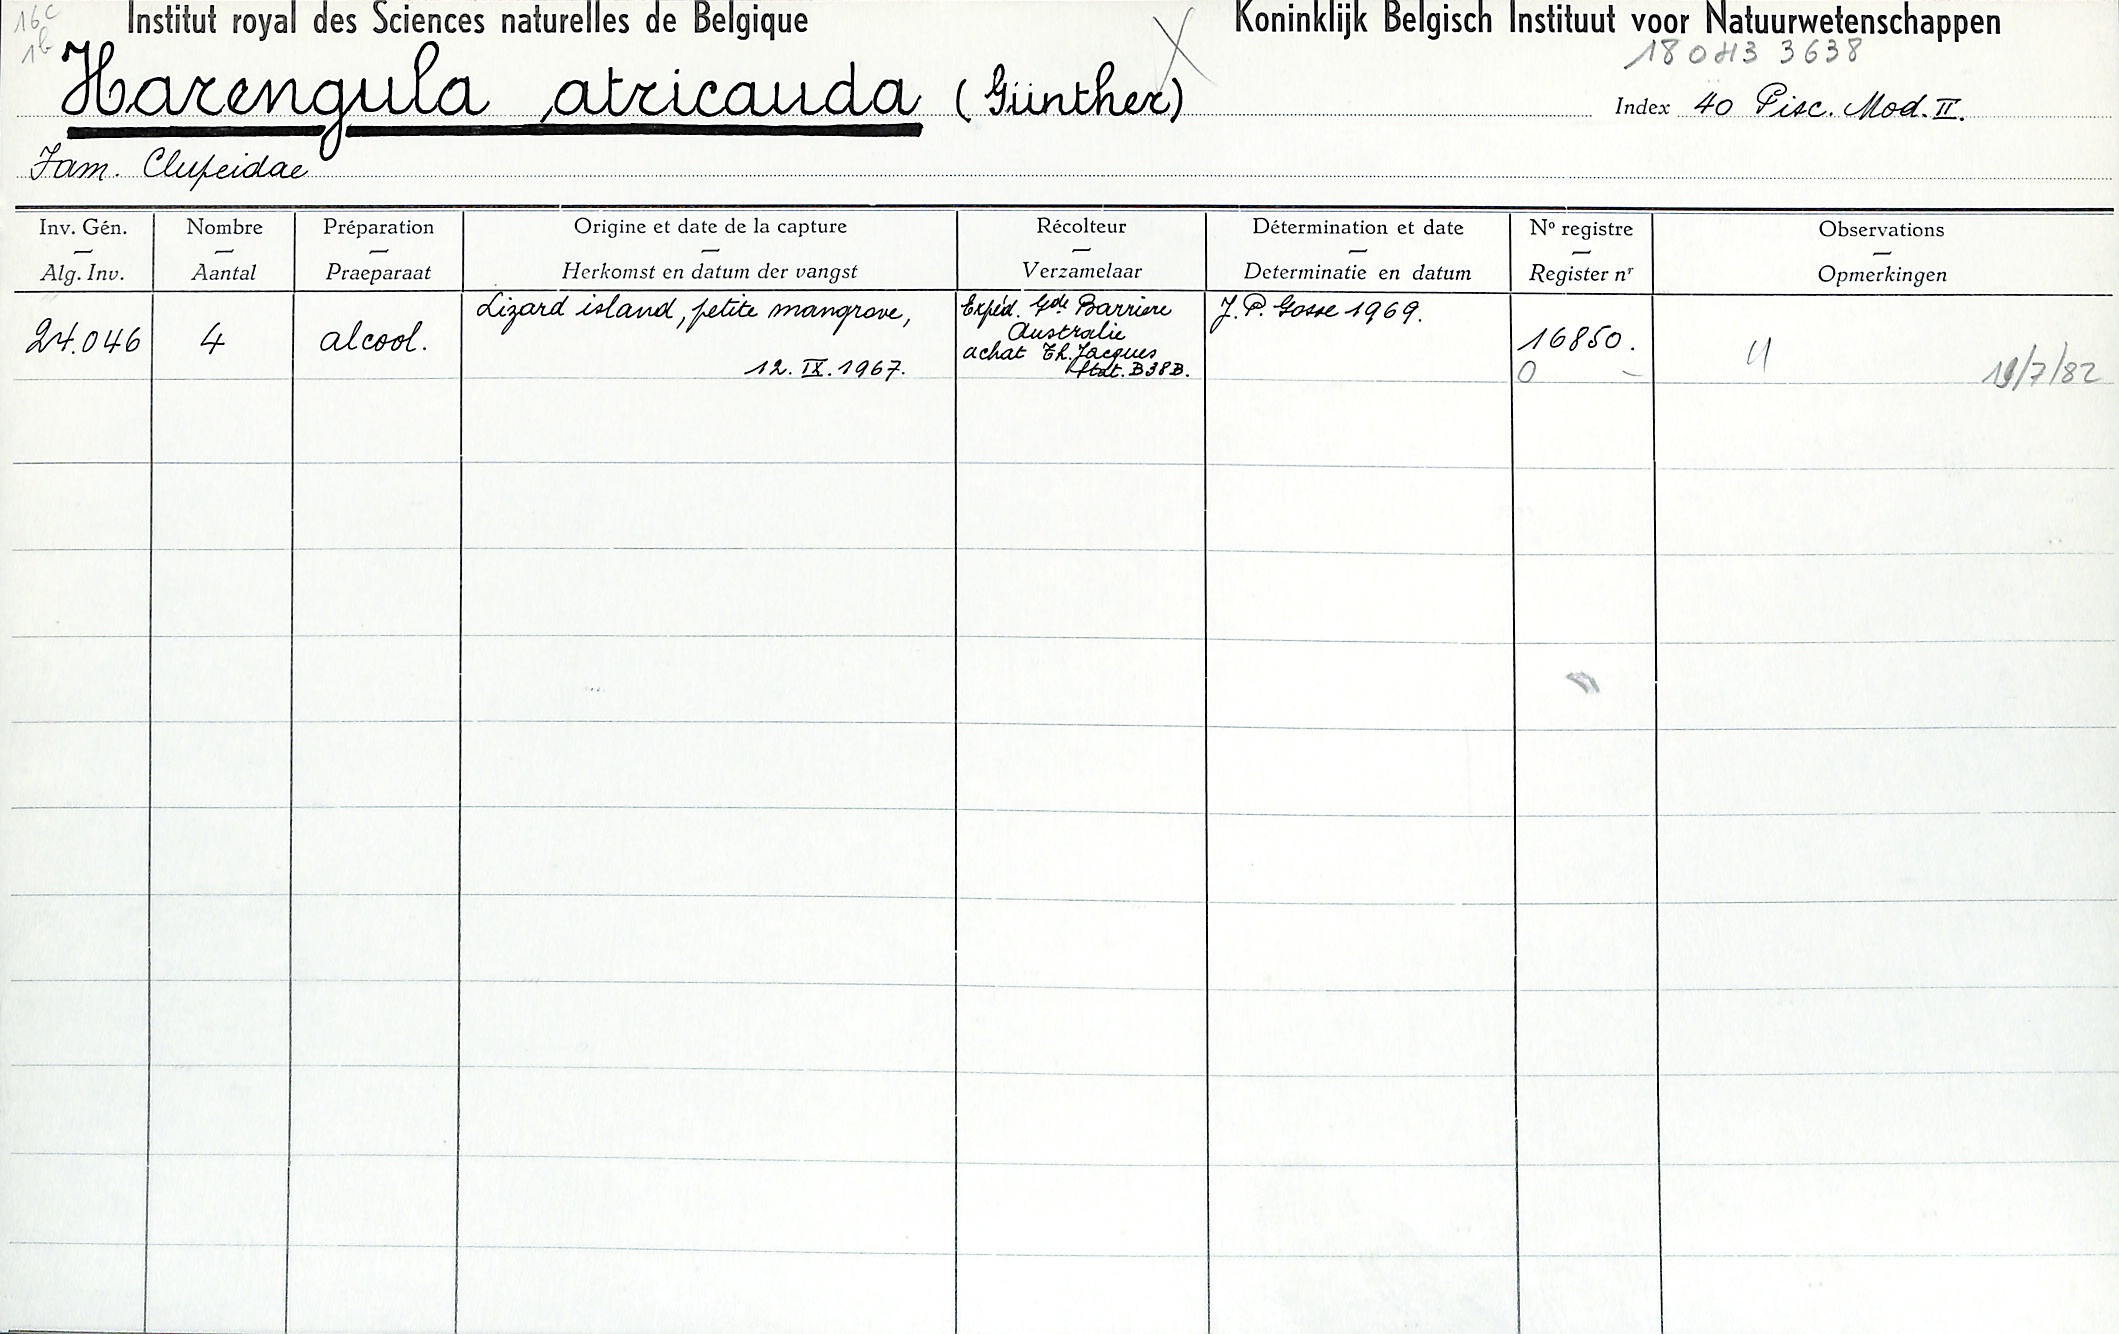 16c
1b
Institut royal des Sciences naturelles de Belgique
Koninklijk Belgisch Instituut voor Natuurwetenschappen
3638
Harengula atricauda (Günther)
Index 40 Pisc. Mod. II.
Fam. Clupeidae
Inv. Gén. Nombre Préparation Origine et date de la capture Récolteur Détermination et date Nº registre Observations
Alg. Inv. Aantal Praeparaat Herkomst en datum der vangst Verzamelaar Determinatie en datum Register nr Opmerkingen
24.046
4
alcool.
Lizard island, petite mangrove,
12. IX. 1967.
Expéd. Gde Barriere
Australie
achat Th. Jacques
Stat. B38B.
J. P. Gosse 1969.
16850.
0 -
4
19/7/82